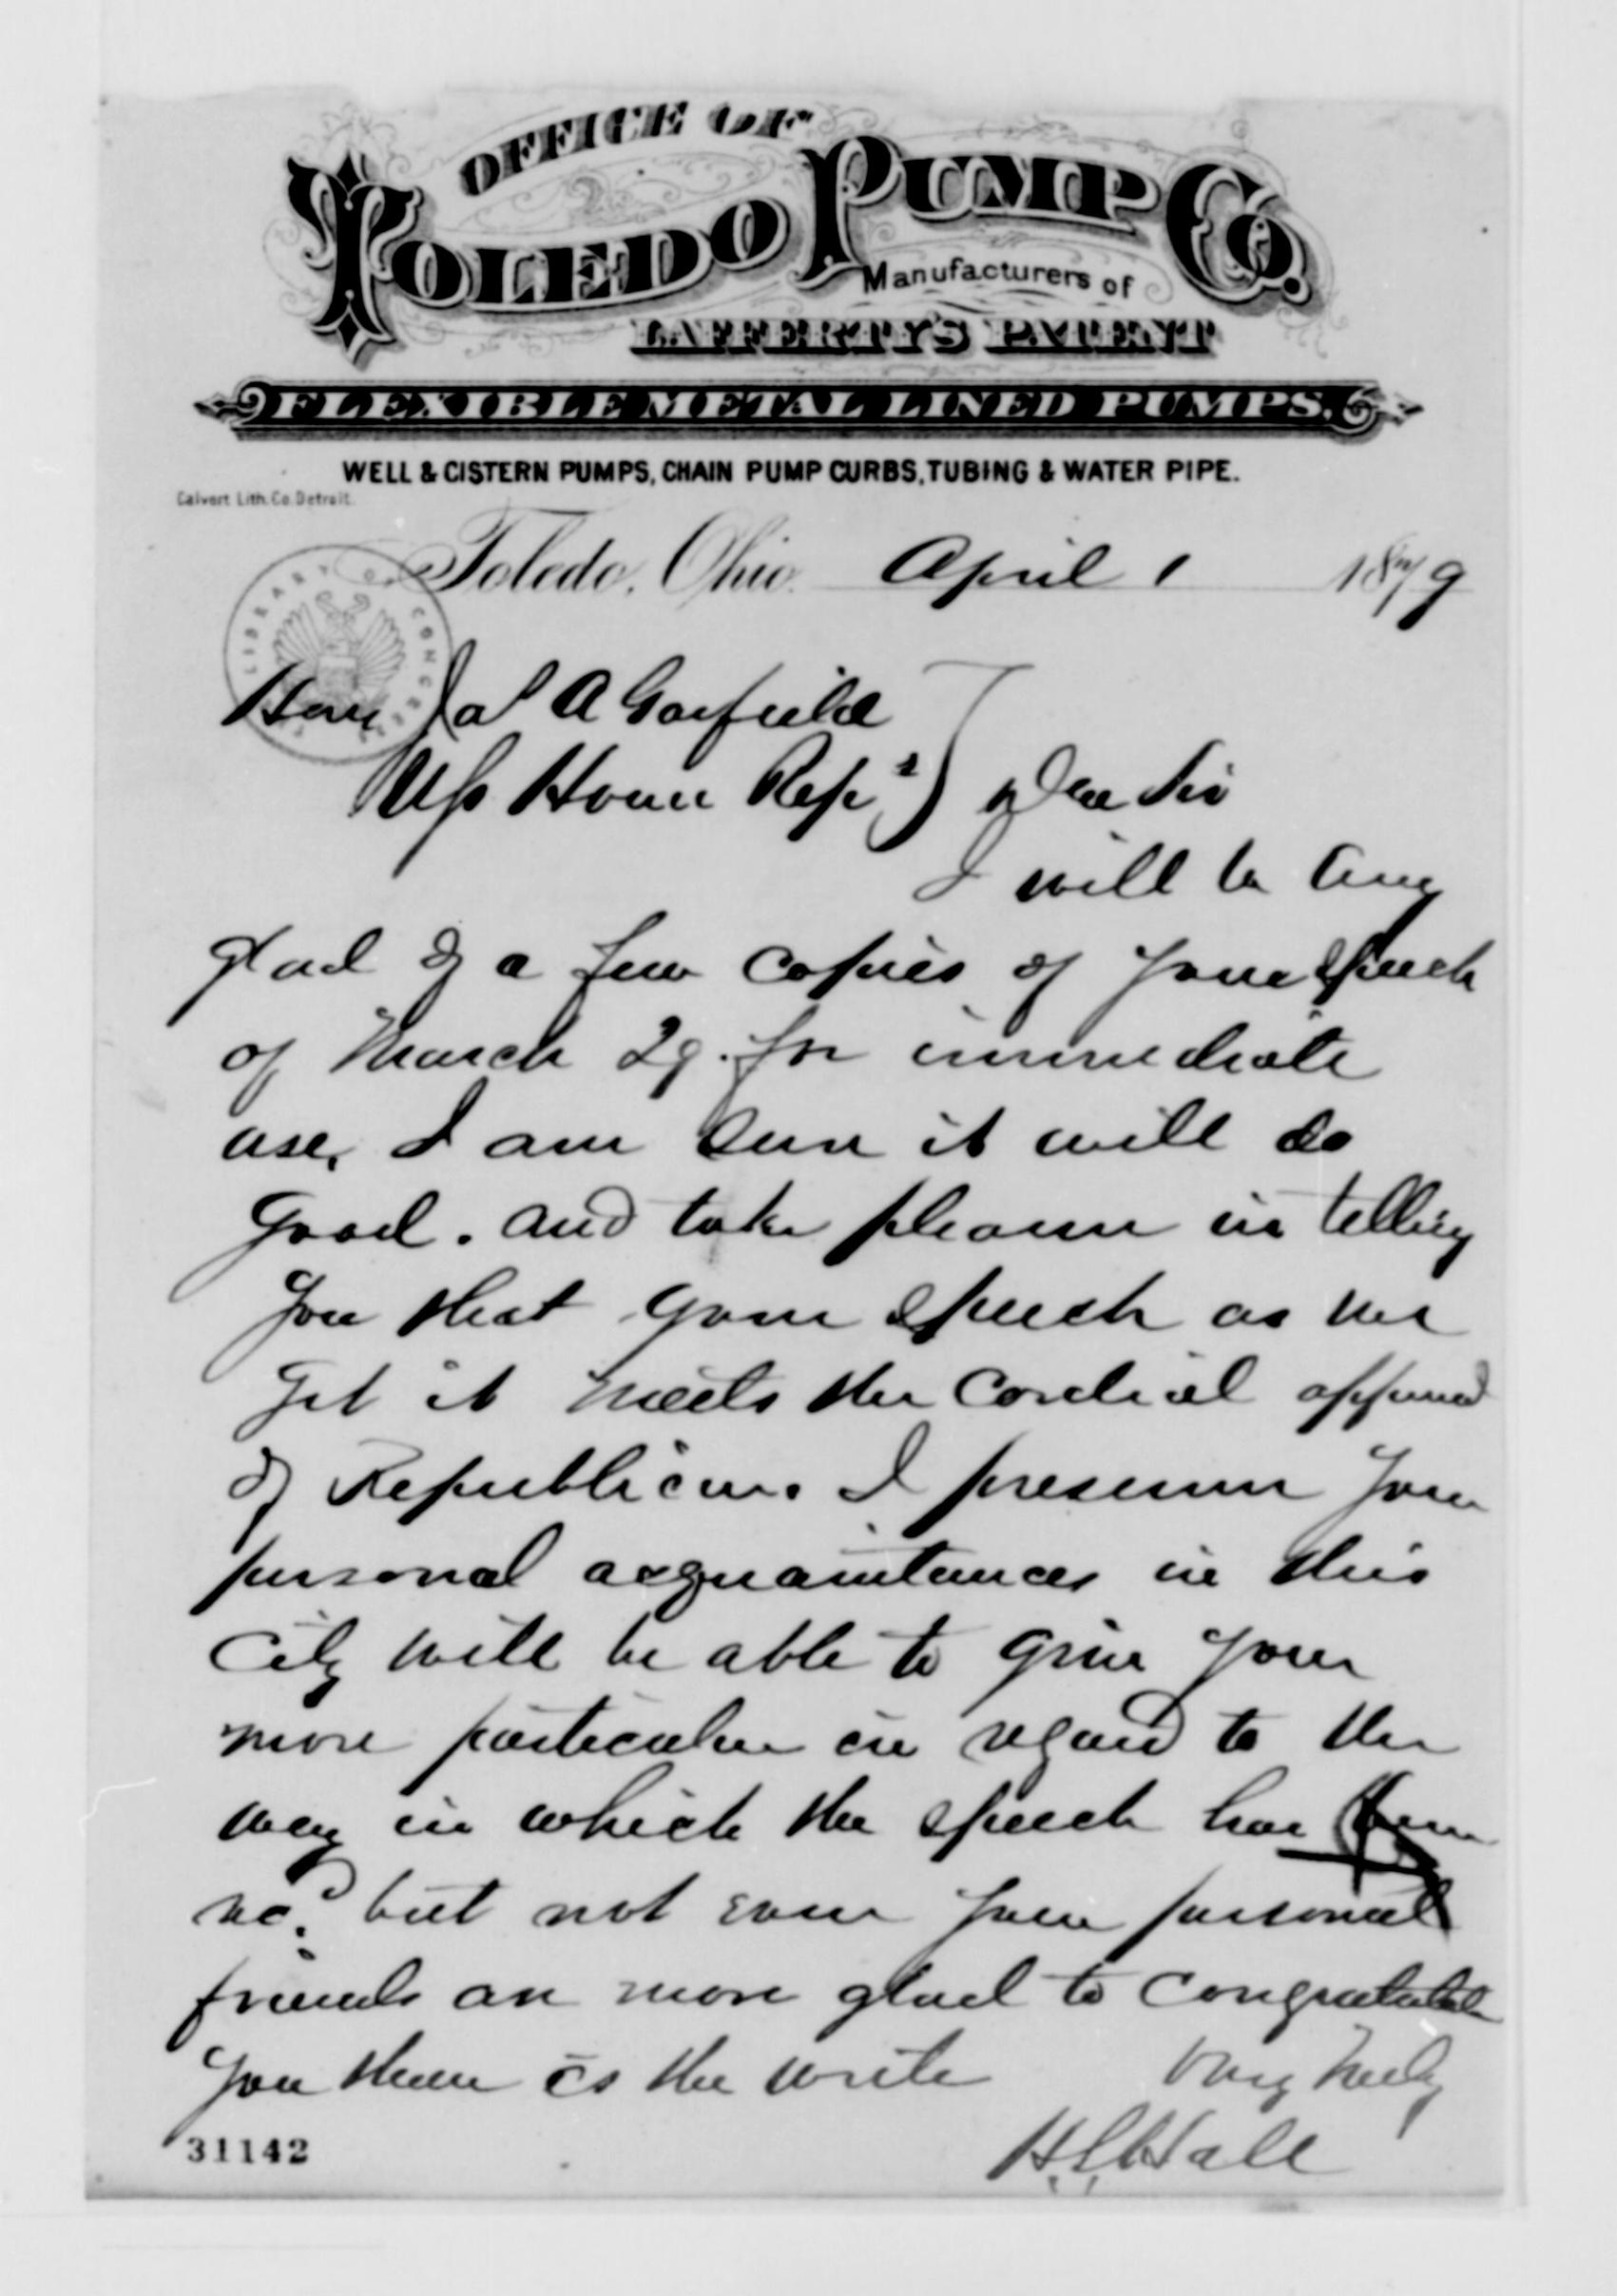 OFFICE OF
TOLEDO PUMP CO.
Manufacturers of
LAFFERTY'S PATENT
FLEXIBLE METAL LINED PUMPS.
WELL & CISTERN PUMPS, CHAIN PUMP CURBS, TUBING & WATER PIPE.
Calvert Lith. Co. Detroit.
Toledo, Ohio. April 1 1879
LIBRARY OF CONGRESS
Hon Jas A Garfield
US House Reps Dear Sir
I will be very
glad of a few copies of your speech
of March 29. for immediate
use, I am sure it will do
good. and take pleasure in telling
you that your speech as we
get it meets the cordial approval
of Republicans. I presume your
personal acquaintances in this
City will be able to give you
more particulars in regard to the
way in which the speech has been
rec'd but not even your personal
friends are more glad to congratulate
you than is the writer Very truly
H. Hall
31142